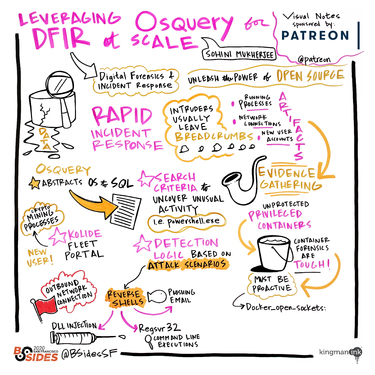 LEVERAGING
DFIR at SCALE
Osquery for
Visual Notes
sponsored by:
PATREON
@patreon
SOHINI MUKHERJEE
Digital Forensics &
INCIDENT Response
UNLEASH the POWER of OPEN SOURCE
DATA
RAPID
INCIDENT
RESPONSE
INTRUDERS
USUALLY
LEAVE
BREADCRUMBS
RUNNING
PROCESSES
NETWORK
CONNECTIONS
NEW USER
ACCOUNTS
ARTIFACTS
OSQUERY
ABSTRACTS OS to SQL
SEARCH
CRITERIA to
UNCOVER UNUSUAL
ACTIVITY
i.e. powershell.exe
EVIDENCE
GATHERING
CRYPTO
MINING
PROCESSES
NEW
USER!
KOLIDE
FLEET
PORTAL
DETECTION
LOGIC BASED on
ATTACK SCENARIOS
UNPROTECTED
PRIVILEGED
CONTAINERS
CONTAINER
FORENSICS
ARE
TOUGH!
MUST BE
PROACTIVE
Docker_open_sockets:
OUTBOUND
NETWORK
CONNECTION
REVERSE
SHELLS
PHISHING
EMAIL
DLL INJECTION
Regsvr32
COMMAND LINE
EXECUTIONS
2020
SAN FRANCISCO
BSIDES
@BSidesSF
kingmanink